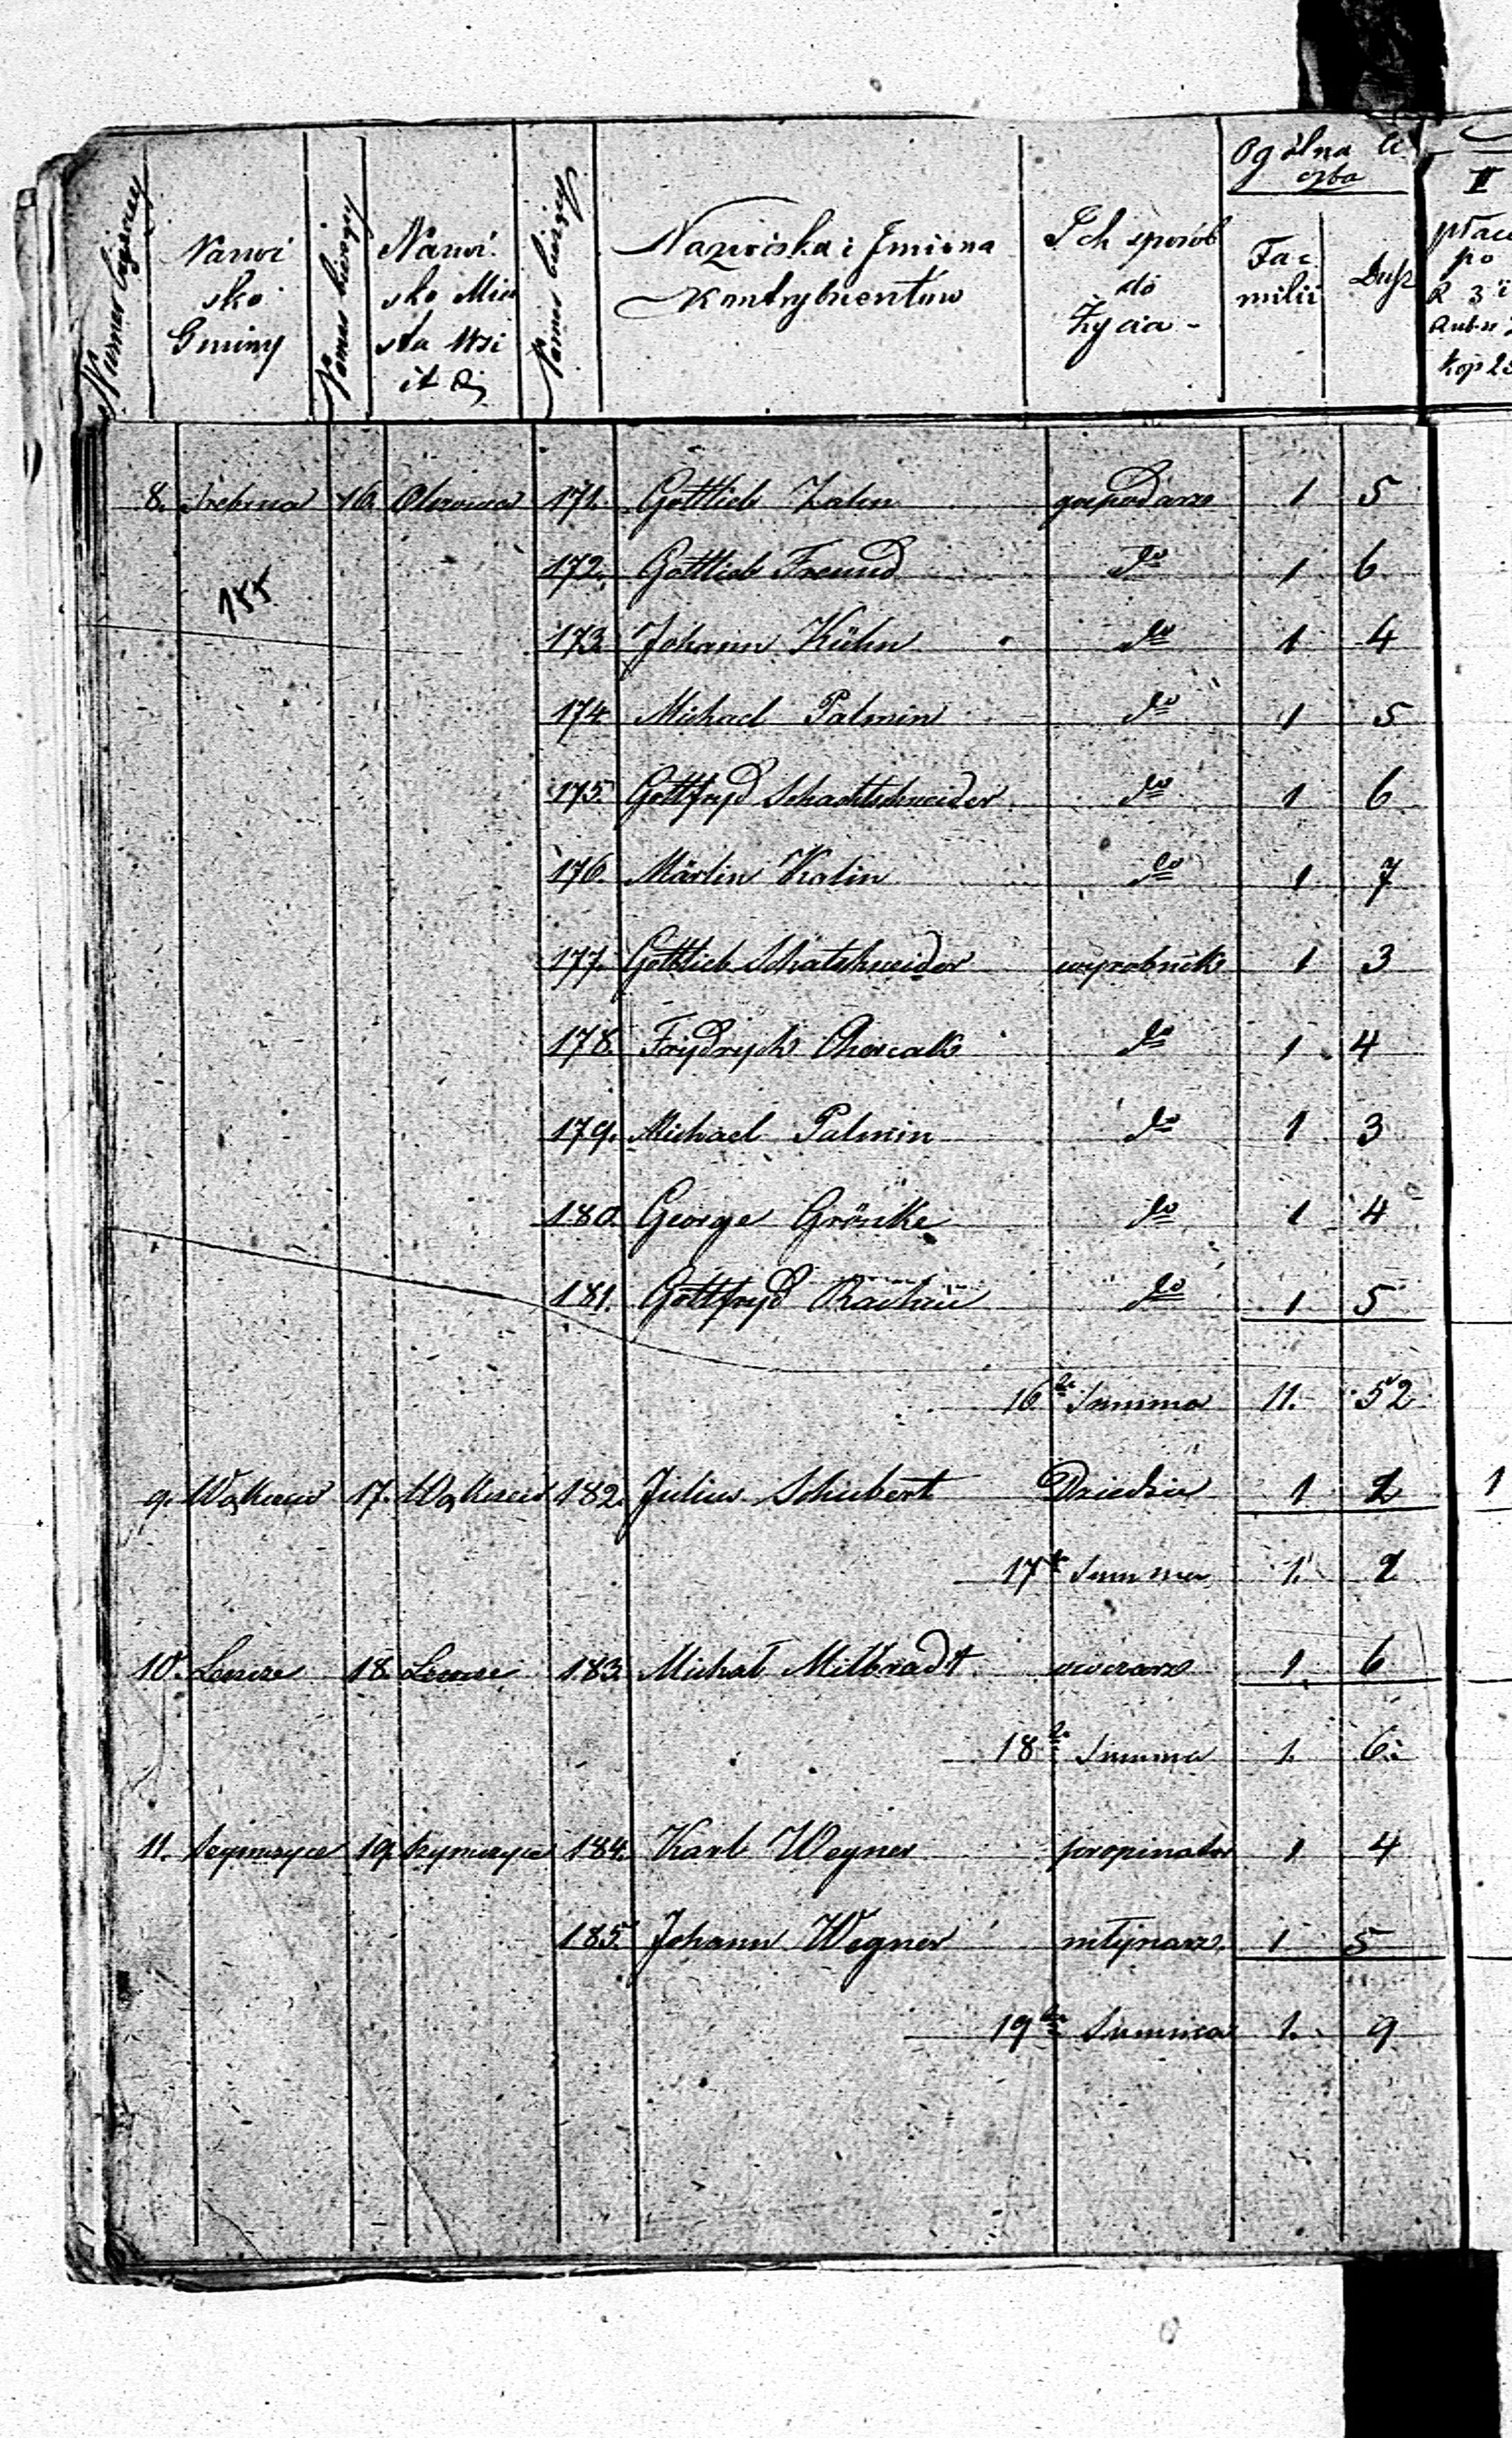 Numer bieżący
Nazwi
sko
Gminy
Numer bieżący
Nazwi
sko Mia
sta Wsi
it d.
Numer bieżący
Nazwiska i Imiona
Kontrybuentów
Ich sposób
do
życia -
Ogólna li
czba
Fa
milii
Dusz
II
płacą
po
R 3 i
kop
8. Srebrna 16. 171. Gottlieb Zahn gospodarz 1 5
172. Gottlieb Freund do 1 6
155
173. Johann Kühn do 1 4
174 Michael Palmin do 1 5
175. Gottfryd Schachtschneider do 1 6
176. Martin Kalin do 1 7
177. Gottlieb Schatschneider wyrobnik 1 3
178. Frydrych do 1 4
179. Michael Palmin do 1 3
180 George Grönke do 1 4
181. Gottfryd do 1 5
16ta Summa 11. 52
9. 17. 182. Julius Schubert Dziedzic 1 2 1
17ta Summa 1. 2
10. 18. 183. Michał Milbradt owczarz 1 6
18ta Summa 1. 6.
11. 19. 184. Karl Wegner propinator 1 4
185. Johann Wegner młynarz 1 5
19ta Summa 1. 9